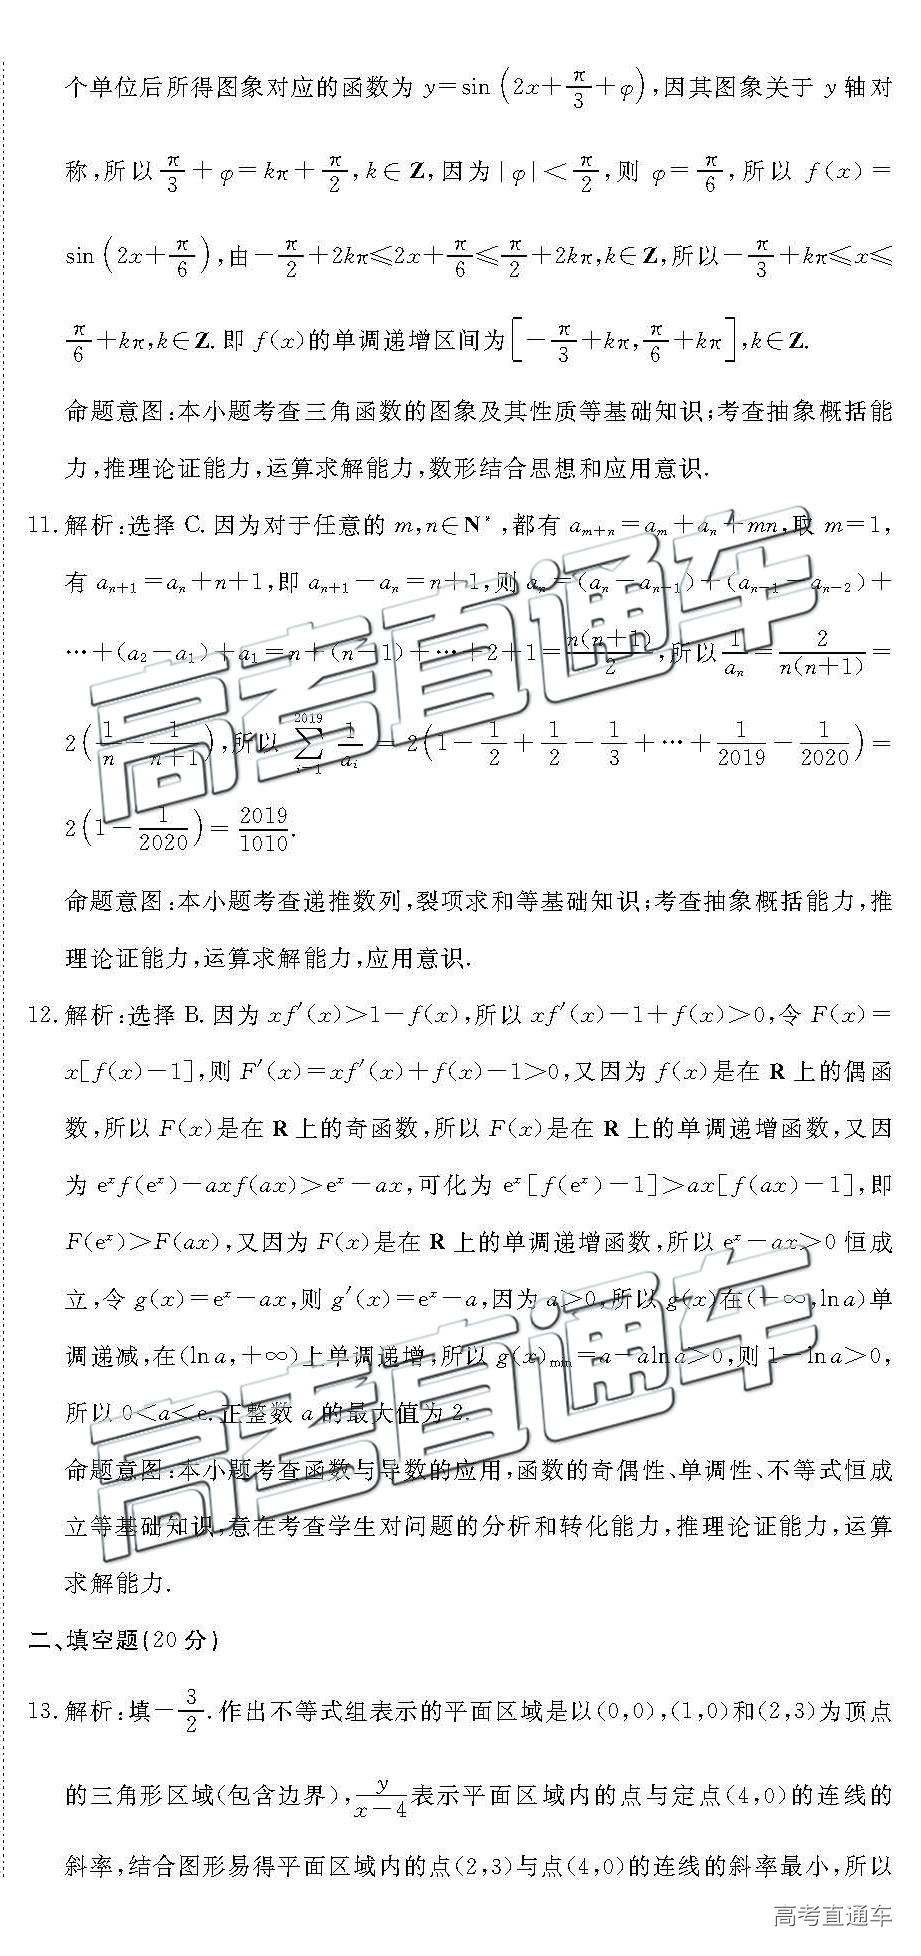 个单位后所得图象对应的函数为 y=sin(2x+π/3+φ),因其图象关于 y 轴对
称,所以 π/3+φ=kπ+π/2,k∈Z,因为|φ|<π/2,则 φ=π/6,所以 f(x)=
sin(2x+π/6),由-π/2+2kπ≤2x+π/6≤π/2+2kπ,k∈Z,所以-π/3+kπ≤x≤
π/6+kπ,k∈Z.即 f(x)的单调递增区间为[-π/3+kπ,π/6+kπ],k∈Z.
命题意图:本小题考查三角函数的图象及其性质等基础知识;考查抽象概括能
力,推理论证能力,运算求解能力,数形结合思想和应用意识.
11.解析:选择 C.因为对于任意的 m,n∈N*,都有 aₘ₊ₙ=aₘ+aₙ+mn,取 m=1,
有 aₙ₊₁=aₙ+n+1,即 aₙ₊₁-aₙ=n+1,则 aₙ=(aₙ-aₙ₋₁)+(aₙ₋₁-aₙ₋₂)+
…+(a₂-a₁)+a₁=n+(n-1)+…+2+1=n(n+1)/2,所以 1/aₙ=2/n(n+1)=
2(1/n-1/(n+1)),所以 ∑(i=1→2019) 1/aᵢ=2(1-1/2+1/2-1/3+…+1/2019-1/2020)=
2(1-1/2020)=2019/1010.
命题意图:本小题考查递推数列,裂项求和等基础知识;考查抽象概括能力,推
理论证能力,运算求解能力,应用意识.
12.解析:选择 B.因为 xf′(x)>1-f(x),所以 xf′(x)-1+f(x)>0,令 F(x)=
x[f(x)-1],则 F′(x)=xf′(x)+f(x)-1>0,又因为 f(x)是在 R 上的偶函
数,所以 F(x)是在 R 上的奇函数,所以 F(x)是在 R 上的单调递增函数,又因
为 eˣf(eˣ)-axf(ax)>eˣ-ax,可化为 eˣ[f(eˣ)-1]>ax[f(ax)-1],即
F(eˣ)>F(ax),又因为 F(x)是在 R 上的单调递增函数,所以 eˣ-ax>0 恒成
立,令 g(x)=eˣ-ax,则 g′(x)=eˣ-a,因为 a>0,所以 g(x)在(-∞,ln a)单
调递减,在(ln a,+∞)上单调递增,所以 g(x)min=a-aln a>0,则 1-ln a>0,
所以 0<a<e.正整数 a 的最大值为 2.
命题意图:本小题考查函数与导数的应用,函数的奇偶性、单调性、不等式恒成
立等基础知识,意在考查学生对问题的分析和转化能力,推理论证能力,运算
求解能力.
二、填空题(20 分)
13.解析:填-3/2.作出不等式组表示的平面区域是以(0,0),(1,0)和(2,3)为顶点
的三角形区域(包含边界),y/(x-4)表示平面区域内的点与定点(4,0)的连线的
斜率,结合图形易得平面区域内的点(2,3)与点(4,0)的连线的斜率最小,所以
高考直通车
高考直通车
高考直通车